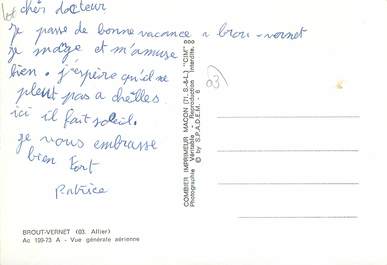 cher docteur
je passe de bonne vacance a brou-vernet
je nage et m'amuse
bien. j'espère qu'il ne
pleut pas a chelles.
ici il fait soleil.
je vous embrasse
bien fort
Patrice
BROUT-VERNET (03. Allier)
Ac 199-73 A - Vue générale aérienne
COMBIER IMPRIMEUR MACON (71, S.-&-L.) "CIM"
Photographie Véritable - Reproduction interdite.
© by S.P.A.D.E.M. - 6
03